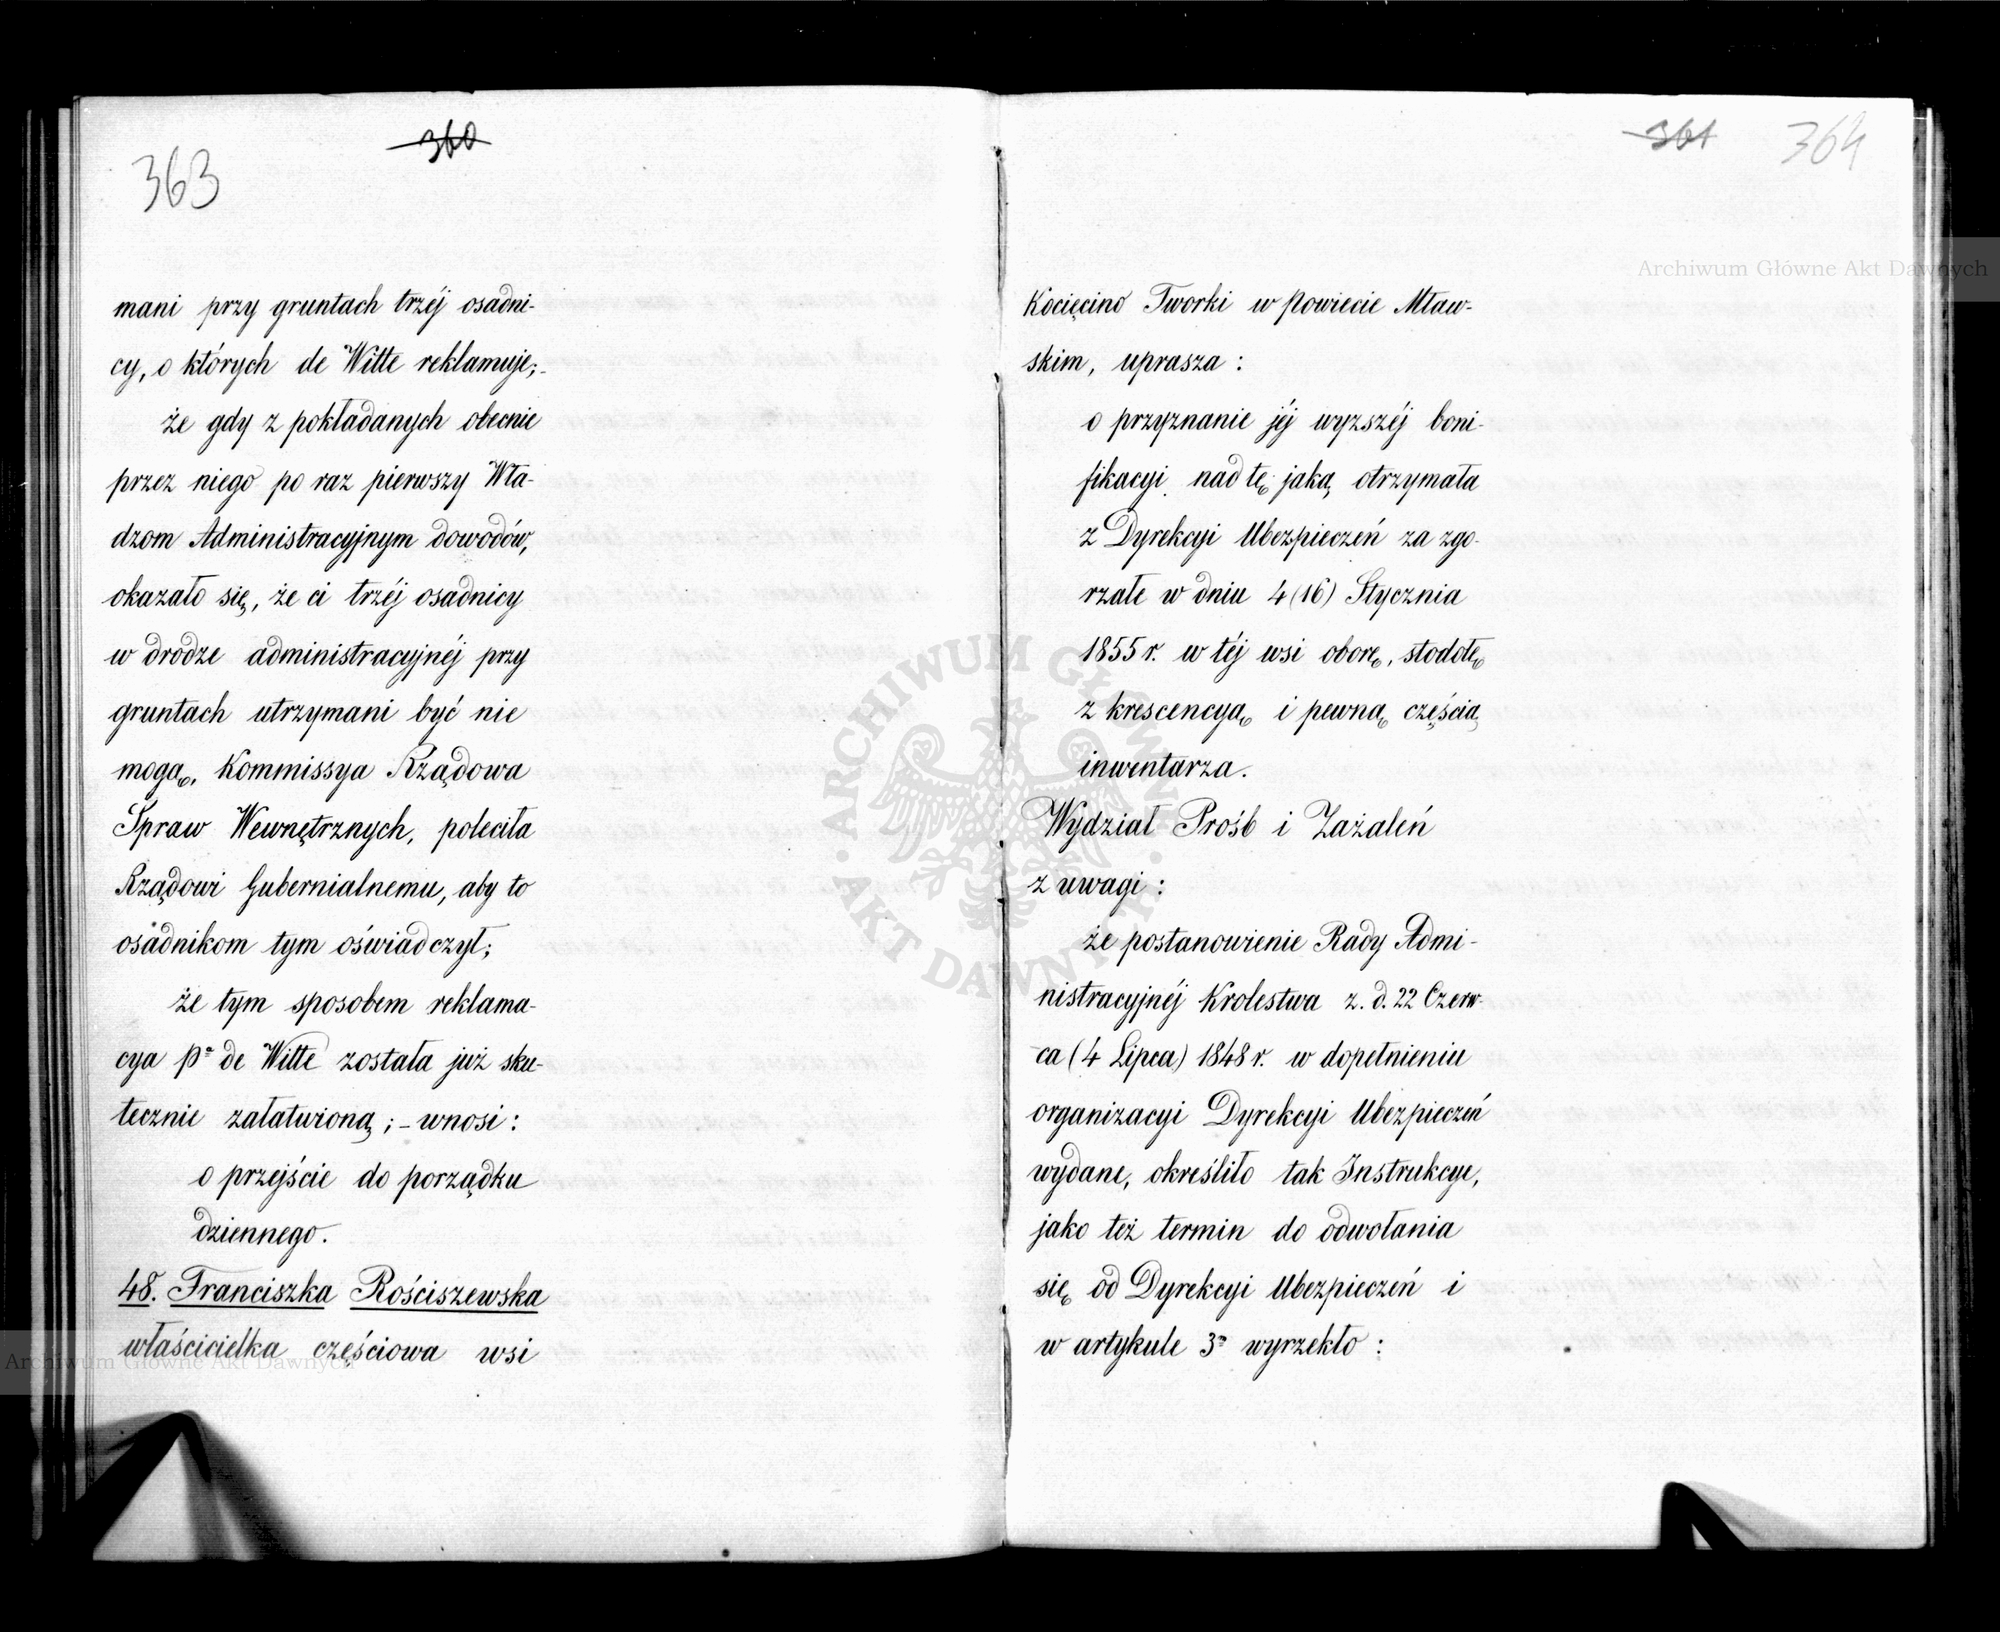 363
360
mani przy gruntach trzéj osadni-
cy, o których de Witte reklamuje;-
że gdy z pokładanych obecnie
przez niego po raz pierwszy Wła-
dzom Administracyjnym dowodów,
okazało się, że ci trzéj osadnicy
w drodze administracyjnéj przy
gruntach utrzymani być nie
mogą, Kommissya Rządowa
Spraw Wewnętrznych, poleciła
Rządowi Gubernialnemu, aby to
osadnikom tym oświadczył;
że tym sposobem reklama-
cya Pa de Witte została już sku-
tecznie załatwioną; - wnosi:
o przejście do porządku
dziennego.
48. Franciszka Rościszewska
właścicielka częściowa wsi
361 364
Kocięcino Tworki w Powiecie Mław-
skim, uprasza:
o przyznanie jéj wyzszéj boni-
fikacyi nad tę jaką otrzymała
z Dyrekcyi Ubezpieczeń za zgo-
rzałe w dniu 4 (16) Stycznia
1855 r. w téj wsi oborę, stodołę
z krescencyą i pewną częścią
inwentarza.
Wydział Prośb i Zażaleń
z uwagi:
że postanowienie Rady Admi-
nistracyjnéj Krolestwa z. d. 22 Czerw-
ca (4 Lipca) 1848 r. w dopełnieniu
organizacyi Dyrekcyi Ubezpieczeń
wydane, określiło tak Instrukcye,
jako też termin do odwołania
się od Dyrekcyi Ubezpieczeń i
w artykule 3m wyrzekło:
Archiwum Główne Akt Dawnych
ARCHIWUM GŁÓWNE
AKT DAWNYCH
Archiwum Główne Akt Dawnych